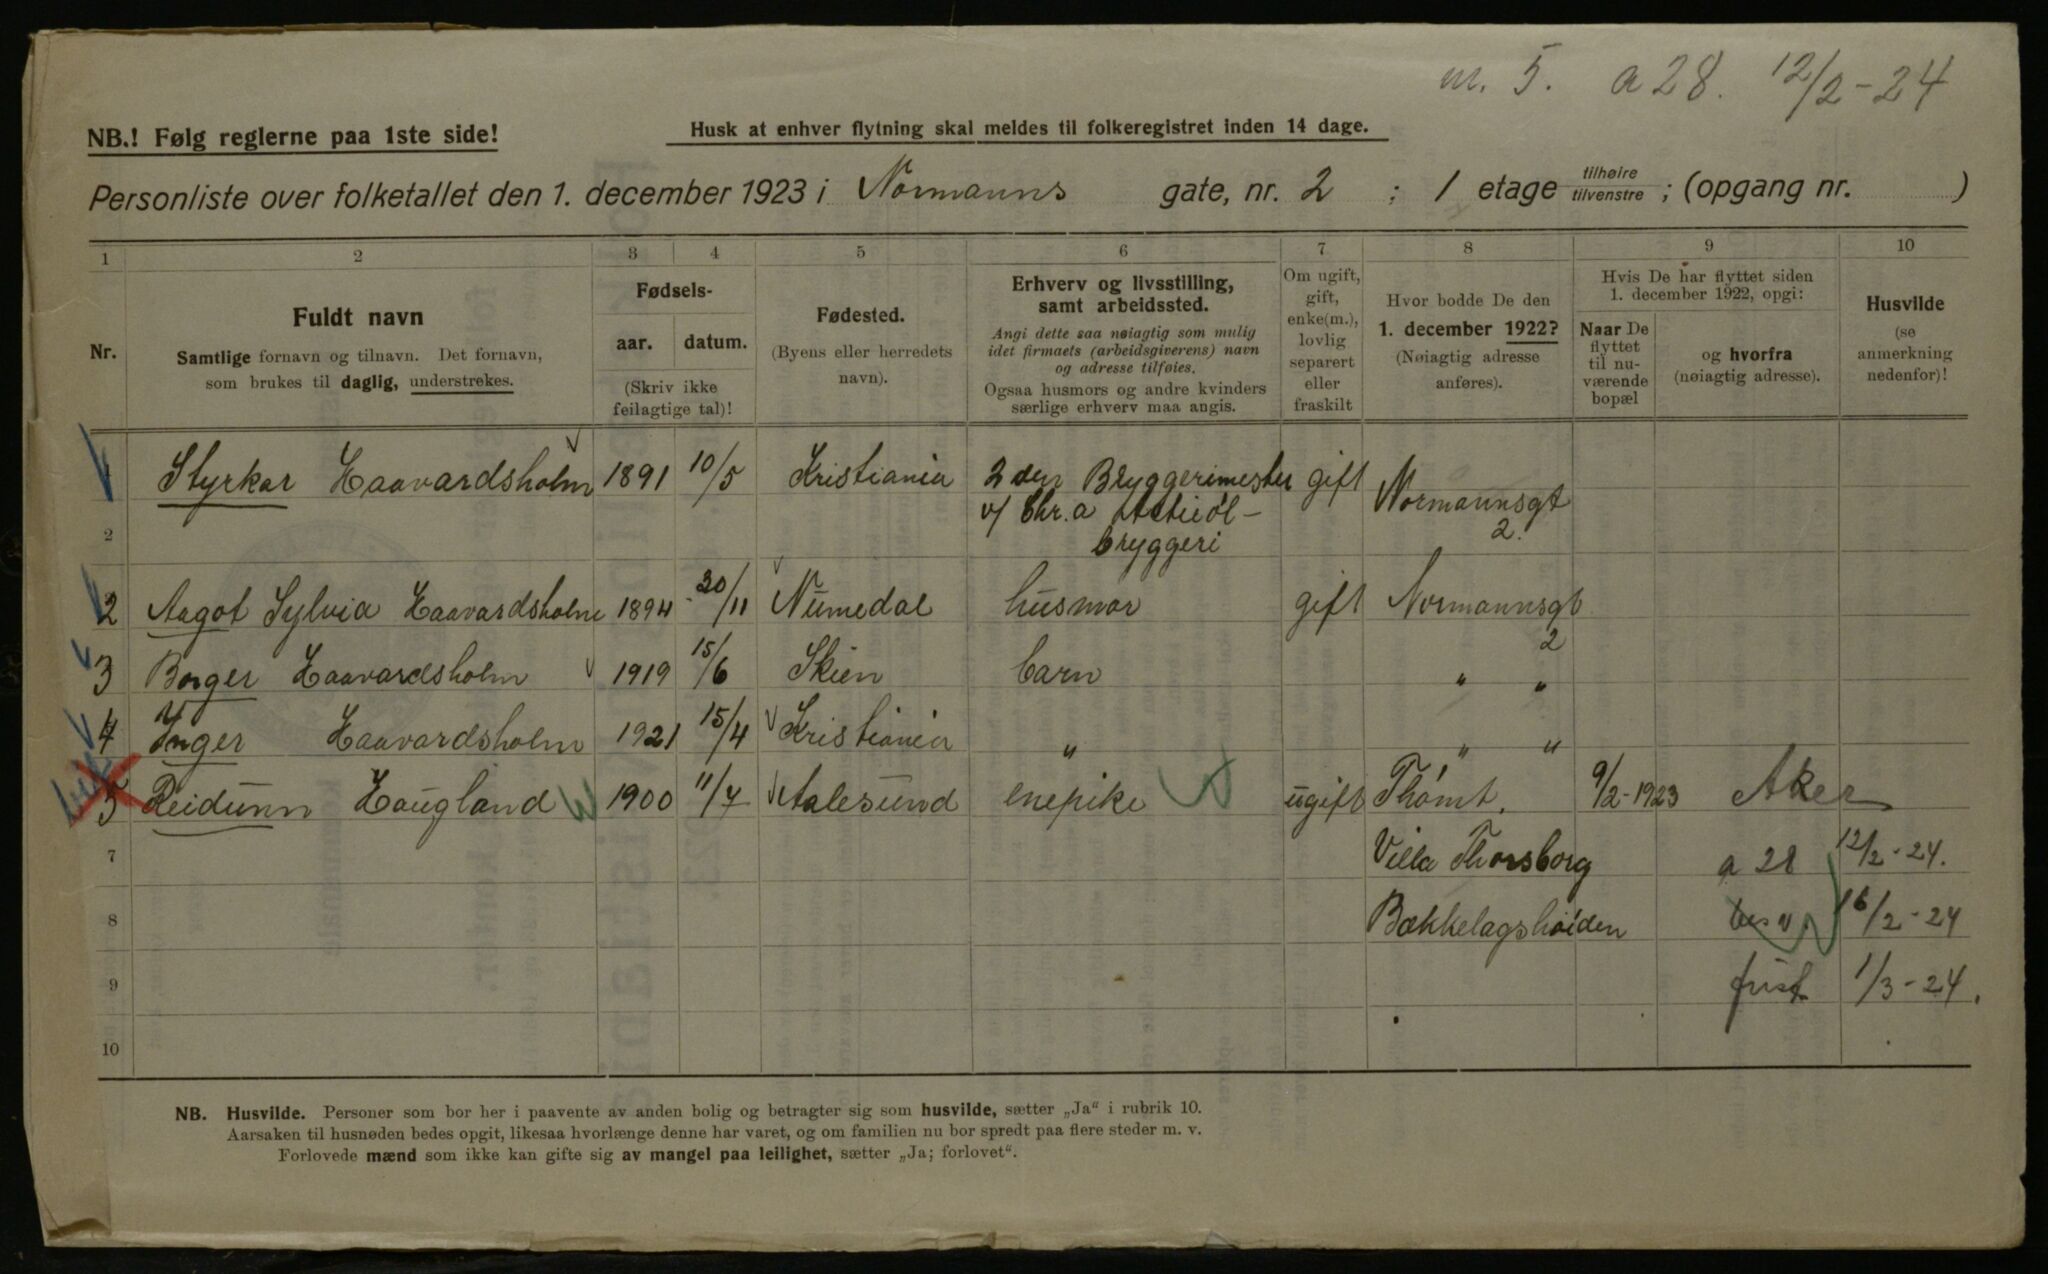 m. 5. a 28. 12/2-24
NB.! Følg reglerne paa 1ste side!
Husk at enhver flytning skal meldes til folkeregistret inden 14 dage.
Personliste over folketallet den 1. december 1923 i Normanns gate, nr. 2 ; 1 etage tilhøire tilvenstre ; (opgang nr. )
1 2 3 4 5 6 7 8 9 10
Nr.
Fuldt navn
Samtlige fornavn og tilnavn. Det fornavn,
som brukes til daglig, understrekes.
Fødsels-
aar. datum.
(Skriv ikke
feilagtige tal)!
Fødested.
(Byens eller herredets
navn).
Erhverv og livsstilling,
samt arbeidssted.
Angi dette saa nøiagtig som mulig
idet firmaets (arbeidsgiverens) navn
og adresse tilføies.
Ogsaa husmors og andre kvinders
særlige erhverv maa angis.
Om ugift,
gift,
enke(m.),
lovlig
separert
eller
fraskilt
Hvor bodde De den
1. december 1922?
(Nøiagtig adresse
anføres).
Hvis De har flyttet siden
1. december 1922, opgi:
Naar De
flyttet
til nu-
værende
bopæl
og hvorfra
(nøiagtig adresse).
Husvilde
(se
anmerkning
nedenfor)!
1 Styrkar Haavardsholm 1891 10/5 Kristiania 2den Bryggerimester gift Normannsgt
v/ Chr.a Aktieøl-
2 2.
bryggeri
2 Aagot Sylvia Haavardsholm 1894 20/11 Numedal husmor gift Normannsgt
2
3 Borger Haavardsholm 1919 15/6 Skien barn " "
4 Inger Haavardsholm 1921 15/4 Kristiania " " "
5 Reidunn Haugland 1900 11/7 Aalesund enepike ugift Thomt. 9/2-1923 Aker
7 Villa Thorsborg a 28 12/2-24.
8 Bækkelagshøiden 16/2-24
9 frist 1/3-24.
10
NB. Husvilde. Personer som bor her i paavente av anden bolig og betragter sig som husvilde, sætter „Ja“ i rubrik 10.
Aarsaken til husnøden bedes opgit, likesaa hvorlænge denne har varet, og om familien nu bor spredt paa flere steder m. v.
Forlovede mænd som ikke kan gifte sig av mangel paa leilighet, sætter „Ja; forlovet“.